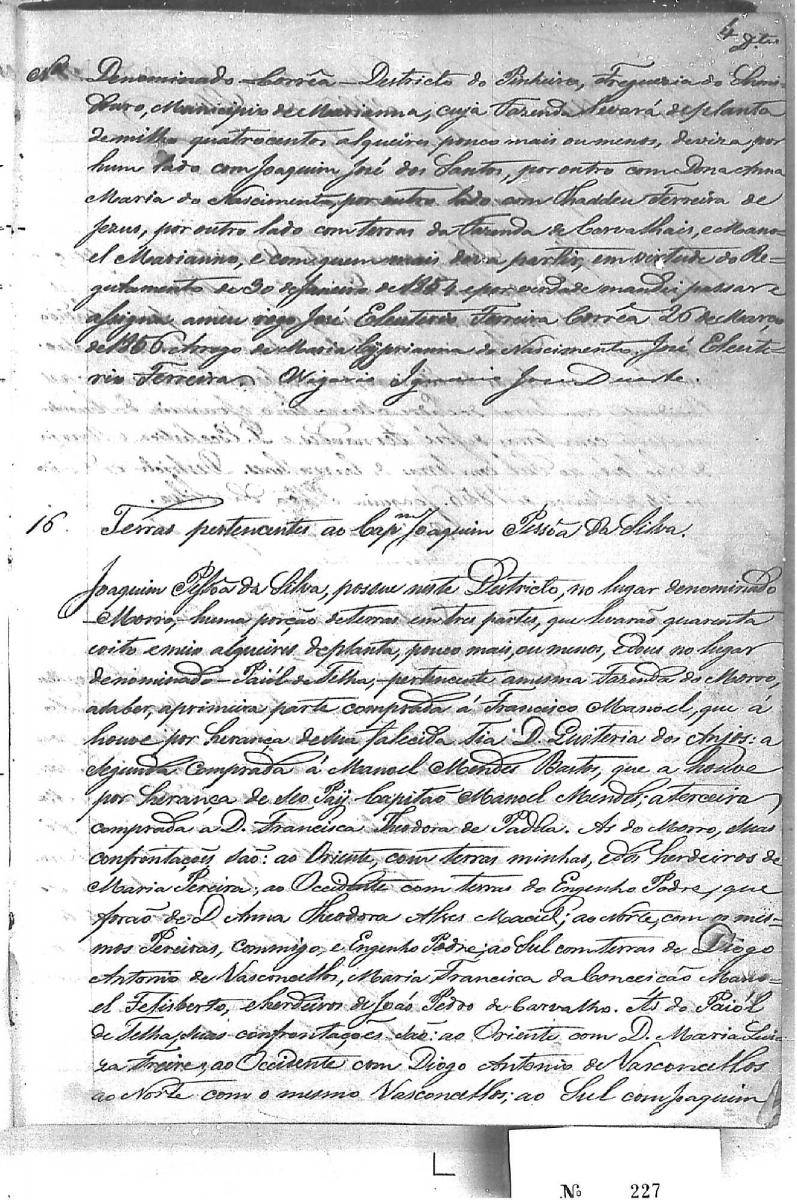 4
Denominado - Corrêa - Destricto do Pinheiro, Freguezia do
Municipio de Marianna, cuja Fazenda levará de planta
de milho quatrocentos alqueires pouco mais ou menos, deviza, por
hum lado com Joaquim José dos Santos, por outro com Dona Anna
Maria do Nascimento, por outro lado com Thaddeu Ferreira de
Jezus, por outro lado com terras da Fazenda de Carvalhais, e Mano-
el Marianno, e com quem mais deva partir, em virtude do Re-
gulamento de 30 de Janeiro de 1854 e por verdade mandei passar e
assignar a meu rogo José Eleuterio Ferreira Corrêa 26 de Março
de 1856. Arogo de Maria Cyprianna do Nascimento. José Eleute-
rio Ferreira. Vigario Ignacio José Duarte.
16 Terras pertencentes ao Capm. Joaquim Pessôa da Silva.
Joaquim Pessôa da Silva, possue neste Destricto, no lugar denominado
- Morro, - huma porção de terras em tres partes, que levarão quarenta
e oito e meio alqueires de planta, pouco mais, ou menos, e dous no lugar
denominado - Paiól de Telha, - pertencente a mesma Fazenda do Morro,
a saber, a primeira parte comprada á Francisco Manoel, que á
houve por herança de sua falecida Tia D. Quiteria dos Anjos: a
segunda comprada á Manoel Mendes Bastos, que a houve
por herança de seo Pay Capitão Manoel Mendes; a terceira
comprada a D. Francisca Theodora de Padua. As do Morro, suas
confrontações são: ao Oriente, com terras minhas, e dos herdeiros de
Maria Pereira; ao Occidente com terras do Engenho Podre, que
forão de D. Anna Theodora Alves Maciel; ao Norte, com os mes-
mos Pereiras, commigo, e Engenho Podre; ao Sul com terras de Diogo
Antonio de Vasconcellos, Maria Francisca da Conceição Mano-
el Felisberto, e herdeiros de João Pedro de Carvalho. As do Paiól
de Telha, suas confrontaçoes são: ao Oriente com D. Maria Lui-
za Freire; ao Occidente com Diogo Antonio de Vasconcellos
ao Norte com o mesmo Vasconcellos; ao Sul com Joaquim
No 227